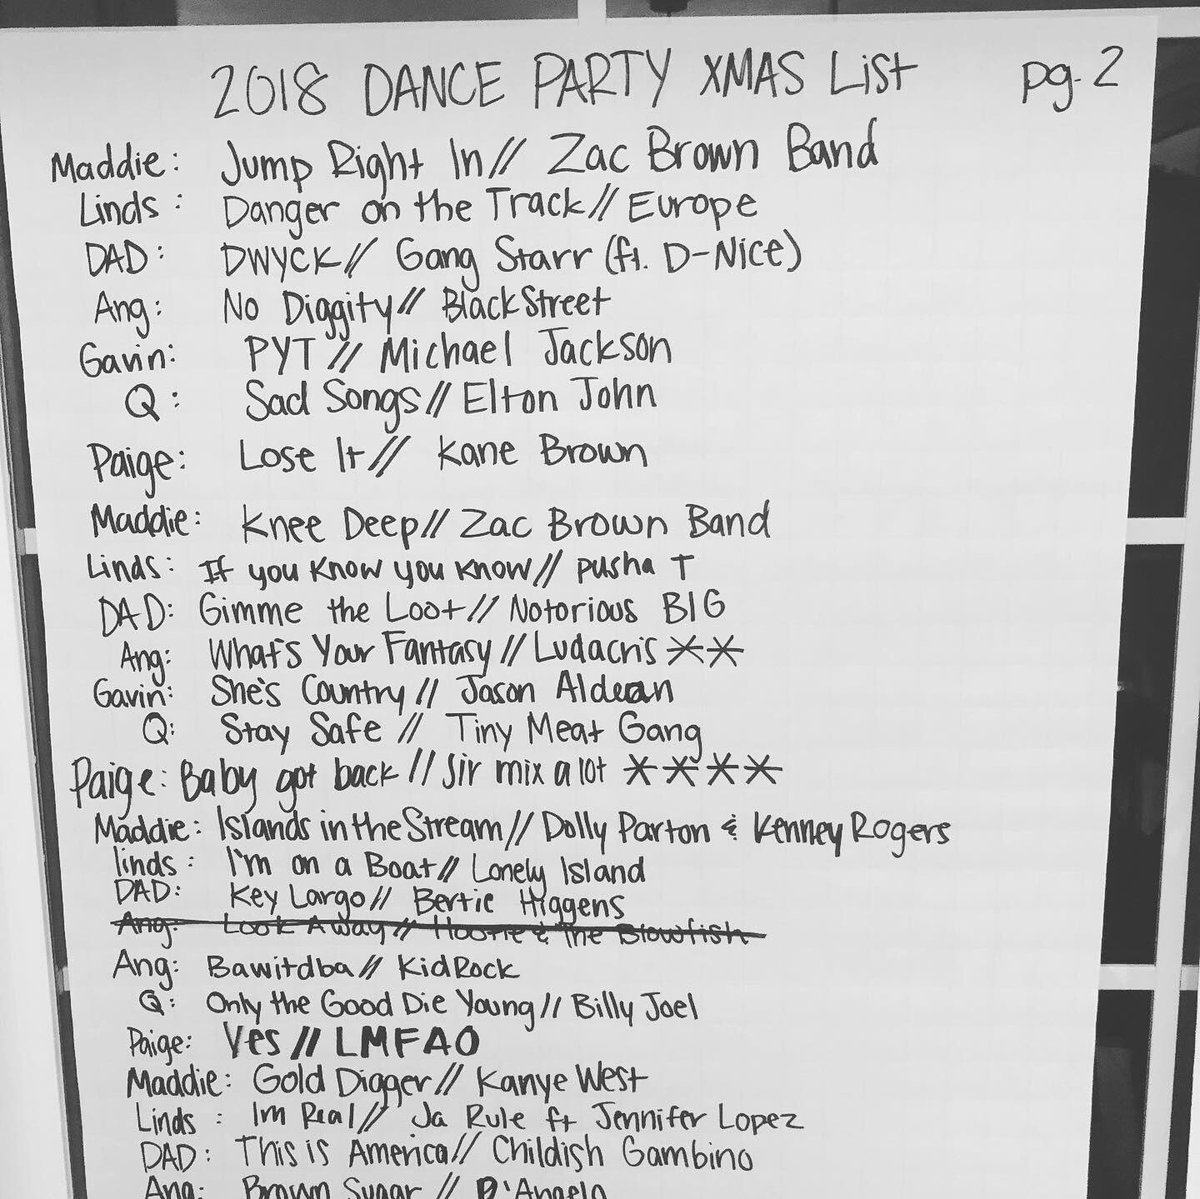 2018 DANCE PARTY XMAS List pg. 2
Maddie: Jump Right In// Zac Brown Band
Linds: Danger on the Track// Europe
DAD: DWYCK// Gang Starr (ft. D-Nice)
Ang: No Diggity// BlackStreet
Gavin: PYT // Michael Jackson
Q: Sad Songs// Elton John
Paige: Lose It// Kane Brown
Maddie: Knee Deep// Zac Brown Band
Linds: If you know you know// pusha T
DAD: Gimme the Loot// Notorious BIG
Ang: What's Your Fantasy // Ludacris **
Gavin: She's Country// Jason Aldean
Q: Stay Safe // Tiny Meat Gang
Paige: Baby got back // Sir mix a lot ****
Maddie: Islands in the Stream// Dolly Parton & Kenney Rogers
linds: I'm on a Boat// Lonely Island
DAD: Key Largo// Bertie Higgens
Ang: Look Away// Hootie & The Blowfish
Ang: Bawitdba// Kid Rock
Q: Only the Good Die Young// Billy Joel
Paige: Yes // LMFAO
Maddie: Gold Digger// Kanye West
Linds: Im Real// Ja Rule ft Jennifer Lopez
DAD: This is America// Childish Gambino
Ang: Brown Sugar // D'Angelo